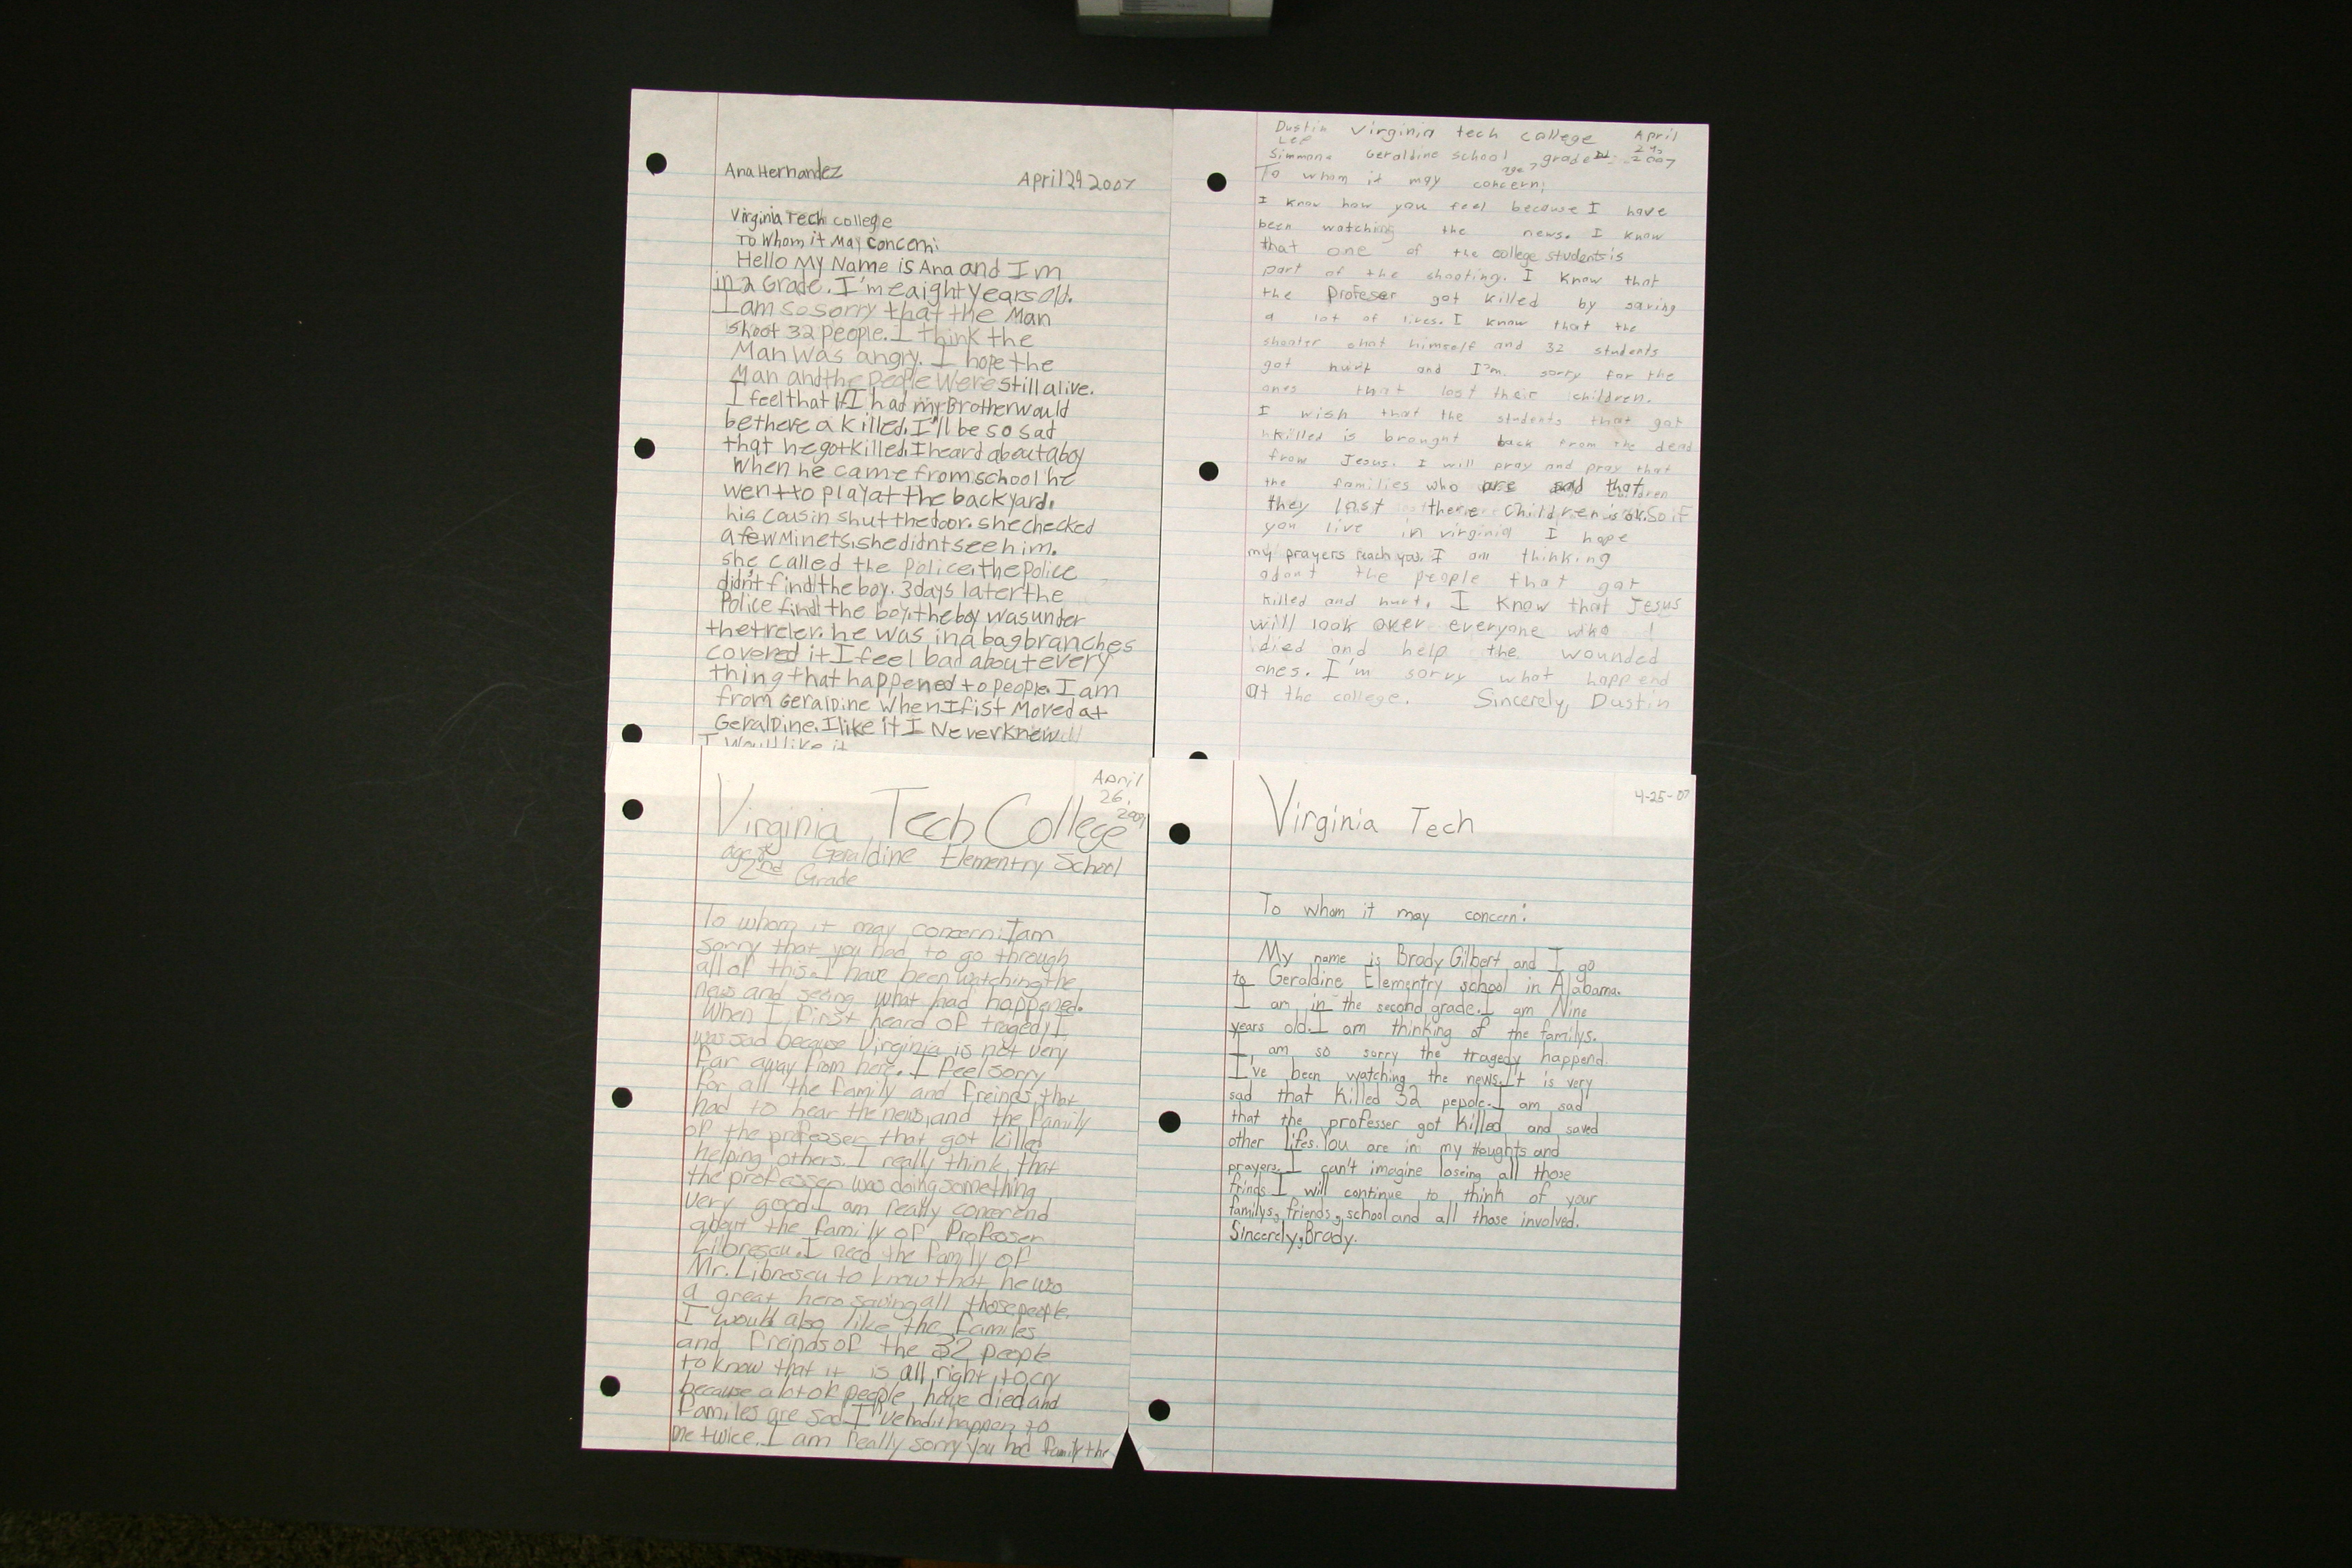 Ana Hernandez
April 24 2007
Virginia Tech college
To Whom it May Concern:
Hello My Name is Ana and I m
in 2 Grade. I'm eaight years old.
I am so sorry that the Man
shoot 32 people. I think the
Man was angry. I hope the
Man and the people were still alive.
I feel that if I had my Brother would
be there a killed. I'll be so sad
that he got killed. I heard about a boy
When he came from school he
went to play at the back yard.
his cousin shut the door. she checked
a few Minets. she didnt see him.
she called the Police. the Police
didn't find the boy. 3 days later the
Police find the boy. the boy was under
the treler. he was in a bag branches
covered it I feel bad about every
thing that happened to people. I am
from Geraldine When I fist Moved at
Geraldine. I like it I Never knew
I would like it
Dustin Virginia tech college April
Lee
Simmons Geraldine school grade 2007
age 7
To whom it may concern;
I know how you feel because I have
been watching the news. I know
that one of the college students is
part of the shooting. I know that
the profeser got killed by saving
a lot of lives. I know that the
shooter shot himself and 32 students
got hurt and I'm sorry for the
ones that lost their children.
I wish that the students that got
killed is brought back from the dead
from Jesus. I will pray and pray that
the families who are sad that
they lost there children is ok. So if
you live in virginia I hope
my prayers reach you. I am thinking
adout the people that got
killed and hurt. I know that Jesus
will look over everyone who
died and help the wounded
ones. I'm sorry what happend
at the college. Sincerely, Dustin
April
26,
2007
Virginia Tech College
age Geraldine Elementry School
2nd Grade
To whom it may concern: I am
sorry that you had to go through
all of this. I have been watching the
news and seeing what had happened.
When I first heard of tragedy I
was sad because Virginia is not very
far away from here. I feel sorry
for all the family and freinds that
had to hear the news, and the family
of the professer that got killed
helping others. I really think that
the professer was doing something
very good. I am really concerend
about the family of Professer
Librescu. I need the family of
Mr. Librescu to know that he was
a great hero saving all those people.
I would also like the familes
and freinds of the 32 people
to know that it is all right to cry
because a lot of people have died and
familes are sad. I've had it happen to
me twice. I am really sorry you had family the
4-25-07
Virginia Tech
To whom it may concern:
My name is Brady Gilbert and I go
to Geraldine Elementry school in Alabama.
I am in the second grade. I am Nine
years old. I am thinking of the familys.
I am so sorry the tragedy happend.
I've been watching the news. It is very
sad that killed 32 pepole. I am sad
that the professer got killed and saved
other lifes. You are in my thoughts and
prayers. I can't imagine loseing all those
frinds. I will continue to think of your
familys, friends, school and all those involved.
Sincerely, Brady.